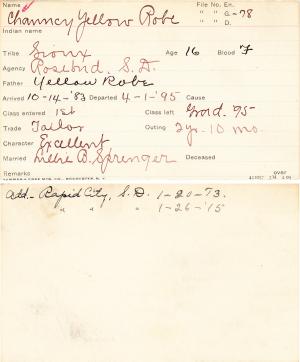 Name File No. En.
Chauncey Yellow Robe " " G. -78
Indian name " " D.
Tribe Sioux Age 16 Blood F
Agency Rosebud, S. D.
Father Yellow Robe
Arrived 10-14-'83 Departed 4-1-'95 Cause
Class entered 1st Class left Grad. 95
Trade Tailor Outing 2 yr. 10 mo.
Character Excellent
Married Lillie B. Sprenger Deceased
Remarks over
Add- Rapid City, S. D. 1-20-'13.
" " " 1-26-'15